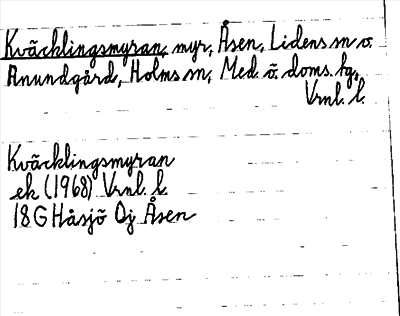 Kväcklingsmyran, myr, Åsen, Lidens sn o.
Anundgård, Holms sn, Med. ö. doms. hg,
Vrnl. l.
Kväcklingsmyran
ek (1968) Vrnl. l.
18G Håsjö Oj Åsen